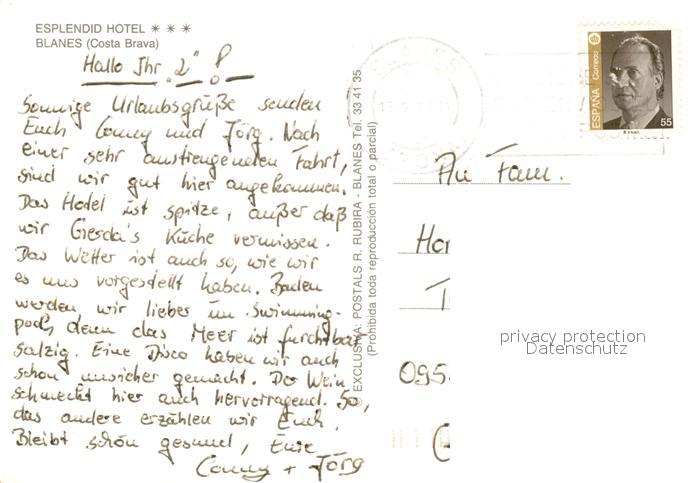 ESPLENDID HOTEL ✶ ✶ ✶
BLANES (Costa Brava)
Hallo Ihr "2" !
Sonnige Urlaubsgrüße senden
Euch Conny und Jörg. Nach
einer sehr anstrengenden Fahrt,
sind wir gut hier angekommen.
Das Hotel ist spitze, außer daß
wir Gerda's Küche vermissen.
Das Wetter ist auch so, wie wir
es uns vorgestellt haben. Baden
werden, wir lieber im Swimming-
pool, denn das Meer ist furchtbar
salzig. Eine Disco haben wir auch
schon unsicher gemacht. Der Wein
schmeckt hier auch hervorragend. So,
das andere erzählen wir Euch.
Bleibt schön gesund, Eure
Conny + Jörg
© EXCLUSIVA: POSTALS R. RUBIRA - BLANES Tel. 33 41 35
(Prohibida toda reproducción total o parcial)
BLANES
ESPAÑA Correos
55
An Fam.
Hor
095
privacy protection
Datenschutz